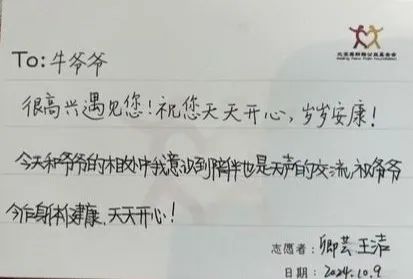 To: 牛爷爷
很高兴遇见您!祝您天天开心,岁岁安康!
今天和爷爷的相处中我意识到陪伴也是无声的交流,祝爷爷
今后身体健康,天天开心!
志愿者: 卿芸 王洁
日期: 2024.10.9